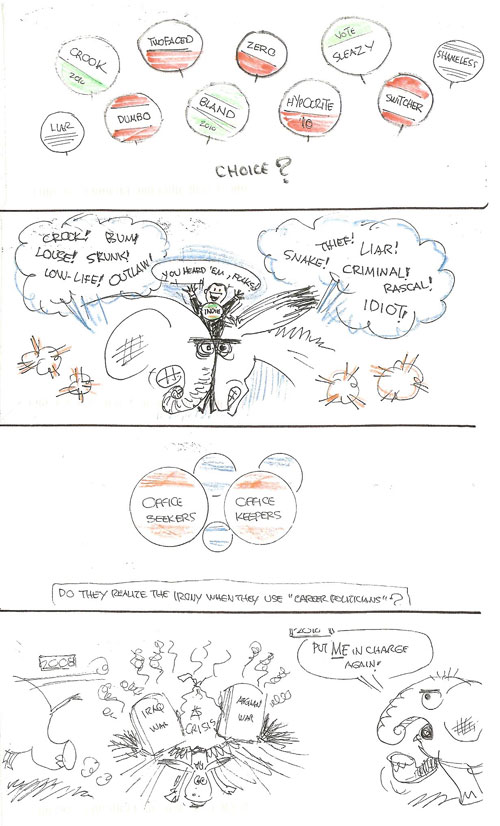 CROOK
2010
TWOFACED
ZERO
VOTE
SLEAZY
SHAMELESS
LIAR
DUMBO
BLAND
2010
HYPOCRITE
'10
SWITCHER
CHOICE?
CROOK! BUM!
LOUSE! SKUNK!
LOW-LIFE! OUTLAW!
YOU HEARD 'EM, FOLKS!
INDIE
THIEF! LIAR!
SNAKE!
CRIMINAL!
RASCAL!
IDIOT!
OFFICE
SEEKERS
OFFICE
KEEPERS
DO THEY REALIZE THE IRONY WHEN THEY USE "CAREER POLITICIANS"?
2008
IRAQ
WAR
$
CRISIS
AFGHAN
WAR
2010
PUT ME IN CHARGE
AGAIN!